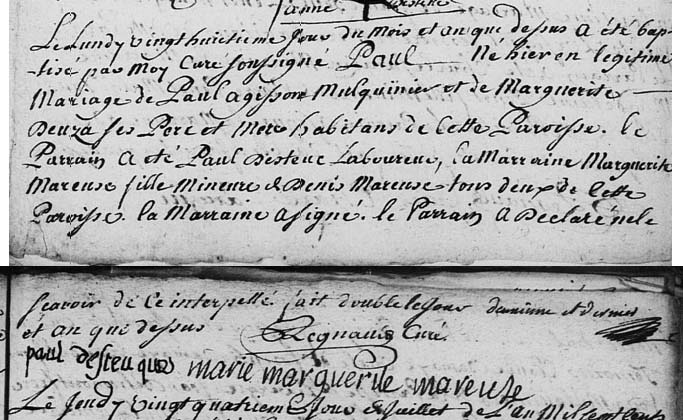 Le Lundy vingt huitieme Jour du Mois et an que dessus a été bap-
-tisé par Moy Curé soussigné Paul Né hier en legitime
Mariage de Paul agisson Mulquinier et de Marguerite
Deuza ses Pere et Mere habitans de Cette Paroisse. le
Parrain a été Paul Disteuc Laboureur, la Marraine Marguerite
Mareuse fille Mineure de Denis Mareuse tous deux de Cette
Paroisse. la Marraine a signé. le Parrain a Declaré ne le
scavoir de Ce interpellé fait double les Jour
et an que dessus Regnault Curé.
paul desteuque marie marguerite mareuse
Le Jeudy vingt quatrieme Jour de Juillet de L'an Mille sept cent